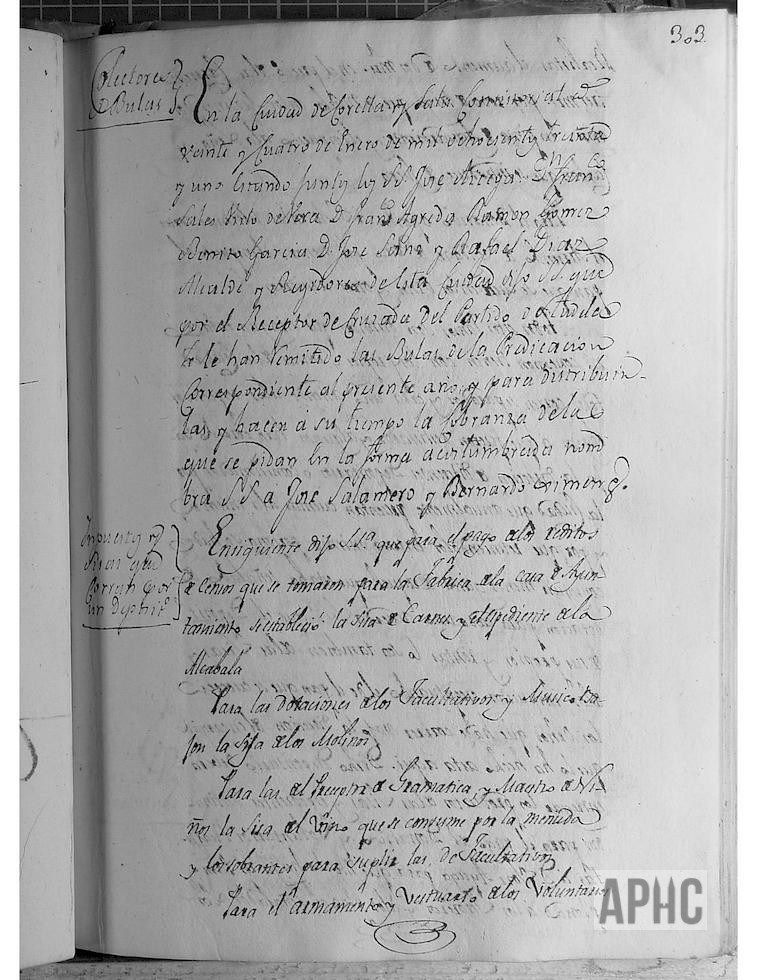 303
Colectores
de Bulas
En la Ciudad de Corella y Sala Consistorial a
veinte y Cuatro de Enero de mil ochocientos treinta
y uno Estando Juntos los SS Jose Arteaga D. Fran.co
Sales Virto de Vera D. Fran.co Agreda Ramon Gomez
Benito Garcia D. Jose Sanz y Rafael Diaz
Alcalde y Regidores de Esta Ciudad dijo SS. que
por el Receptor de Cruzada del Partido de Tudela
se le han remitido las Bulas de la Predicacion
Correspondiente al presente año, y para distribuir-
las y hacer a su tiempo la Cobranza de las
que se pidan En la forma acostumbrada nom
bra S.S. a Jose Salamero y Bernardo Ximenez.
Impuestos y
Sisas que
Corren por
un Deposit.o
Enseguiente dijo SSa que para el pago de los reditos
de Censos que se tomaron para la Fabrica de la casa de Ayun
tamiento se estableció la Sisa de Carnes y el espediente de la
Alcabala
Para las dotaciones de los Facultativos y Musico
son la Sisa de los Molinos
Para las del Preceptor de Gramatica, y Maestro de Ni-
ños la Sisa del Vino que se consume por la menuda
y los sobrantes para suplir las de Facultativos
Para el armamento y Vestuario de los Voluntarios
APHC